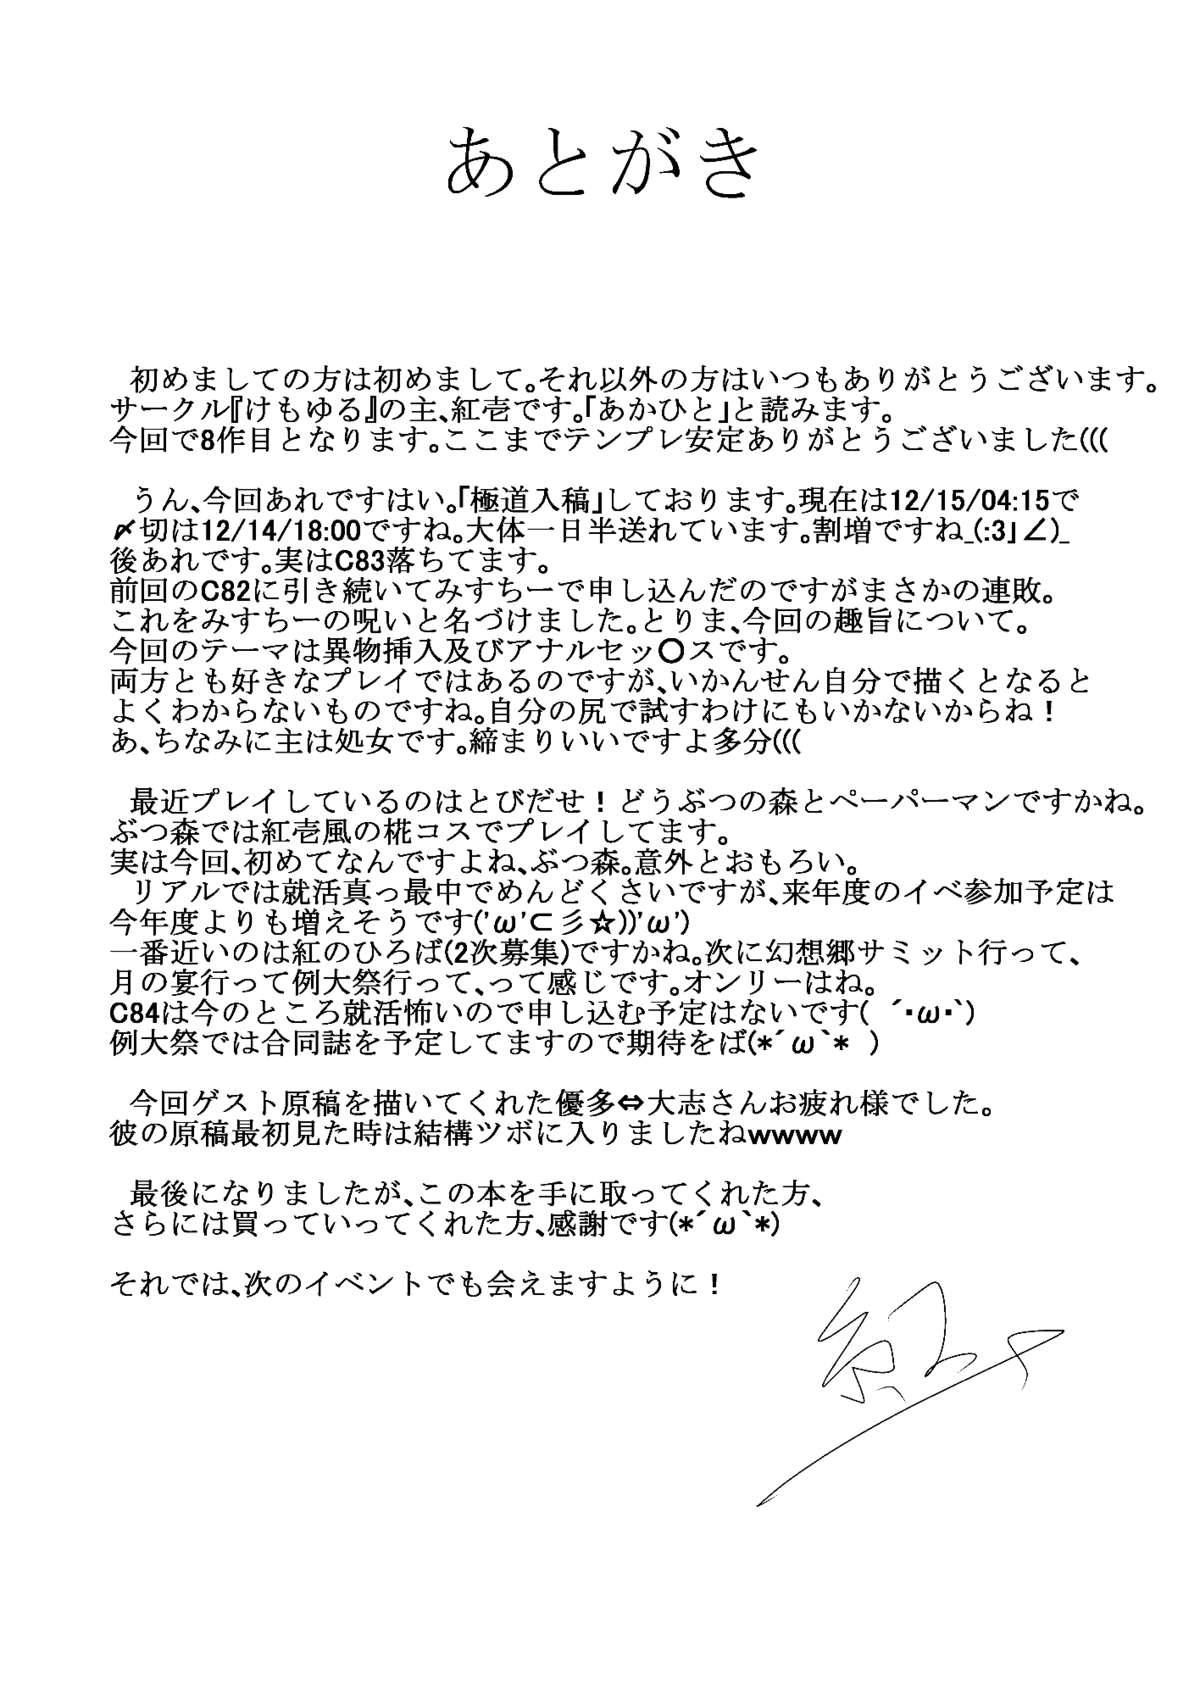 あとがき
初めましての方は初めまして。それ以外の方はいつもありがとうございます。
サークル『けもゆる』の主、紅壱です。「あかひと」と読みます。
今回で8作目となります。ここまでテンプレ安定ありがとうございました(((
うん、今回あれですはい。「極道入稿」しております。現在は12/15/04:15で
〆切は12/14/18:00ですね。大体一日半送れています。割増ですね_(:3」∠)_
後あれです。実はC83落ちてます。
前回のC82に引き続いてみすちーで申し込んだのですがまさかの連敗。
これをみすちーの呪いと名づけました。とりま、今回の趣旨について。
今回のテーマは異物挿入及びアナルセッ〇スです。
両方とも好きなプレイではあるのですが、いかんせん自分で描くとなると
よくわからないものですね。自分の尻で試すわけにもいかないからね！
あ、ちなみに主は処女です。締まりいいですよ多分(((
最近プレイしているのはとびだせ！どうぶつの森とペーパーマンですかね。
ぶつ森では紅壱風の椛コスでプレイしてます。
実は今回、初めてなんですよね、ぶつ森。意外とおもろい。
リアルでは就活真っ最中でめんどくさいですが、来年度のイベ参加予定は
今年度よりも増えそうです('ω'⊂彡☆))'ω')
一番近いのは紅のひろば(2次募集)ですかね。次に幻想郷サミット行って、
月の宴行って例大祭行って、って感じです。オンリーはね。
C84は今のところ就活怖いので申し込む予定はないです( ´・ω・`)
例大祭では合同誌を予定してますので期待をば(*´ω`* )
今回ゲスト原稿を描いてくれた優多⇔大志さんお疲れ様でした。
彼の原稿最初見た時は結構ツボに入りましたねwwww
最後になりましたが、この本を手に取ってくれた方、
さらには買っていってくれた方、感謝です(*´ω`*)
それでは、次のイベントでも会えますように！